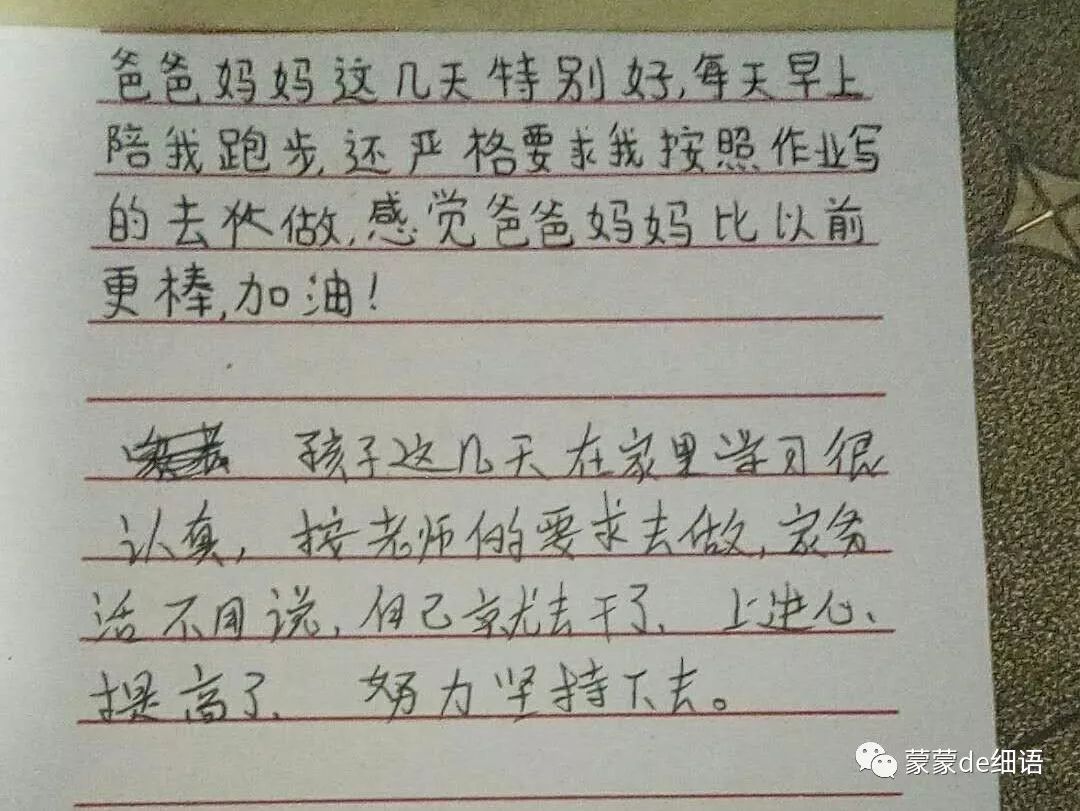 爸爸妈妈这几天特别好,每天早上
陪我跑步,还严格要求我按照作业写
的去做,感觉爸爸妈妈比以前
更棒,加油!
孩子这几天在家里学习很
认真,按老师的要求去做,家务
活不用说,自己就去干了,上进心、
提高了,努力坚持下去。
蒙蒙de细语